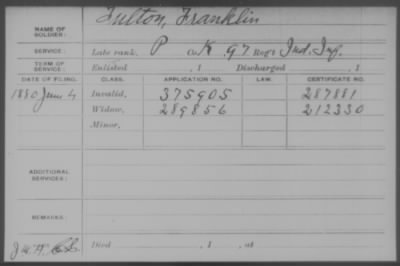 NAME OF SOLDIER: Fulton, Franklin
SERVICE: Late rank, P Co. K, 97 Reg't Ind. Inf.
TERM OF SERVICE: Enlisted , 1 Discharged , 1
DATE OF FILING. CLASS. APPLICATION NO. LAW. CERTIFICATE NO.
1880 June 4 Invalid, 375905 287881
Widow, 289856 212330
Minor,
ADDITIONAL SERVICES:
REMARKS:
Died , 1 , at